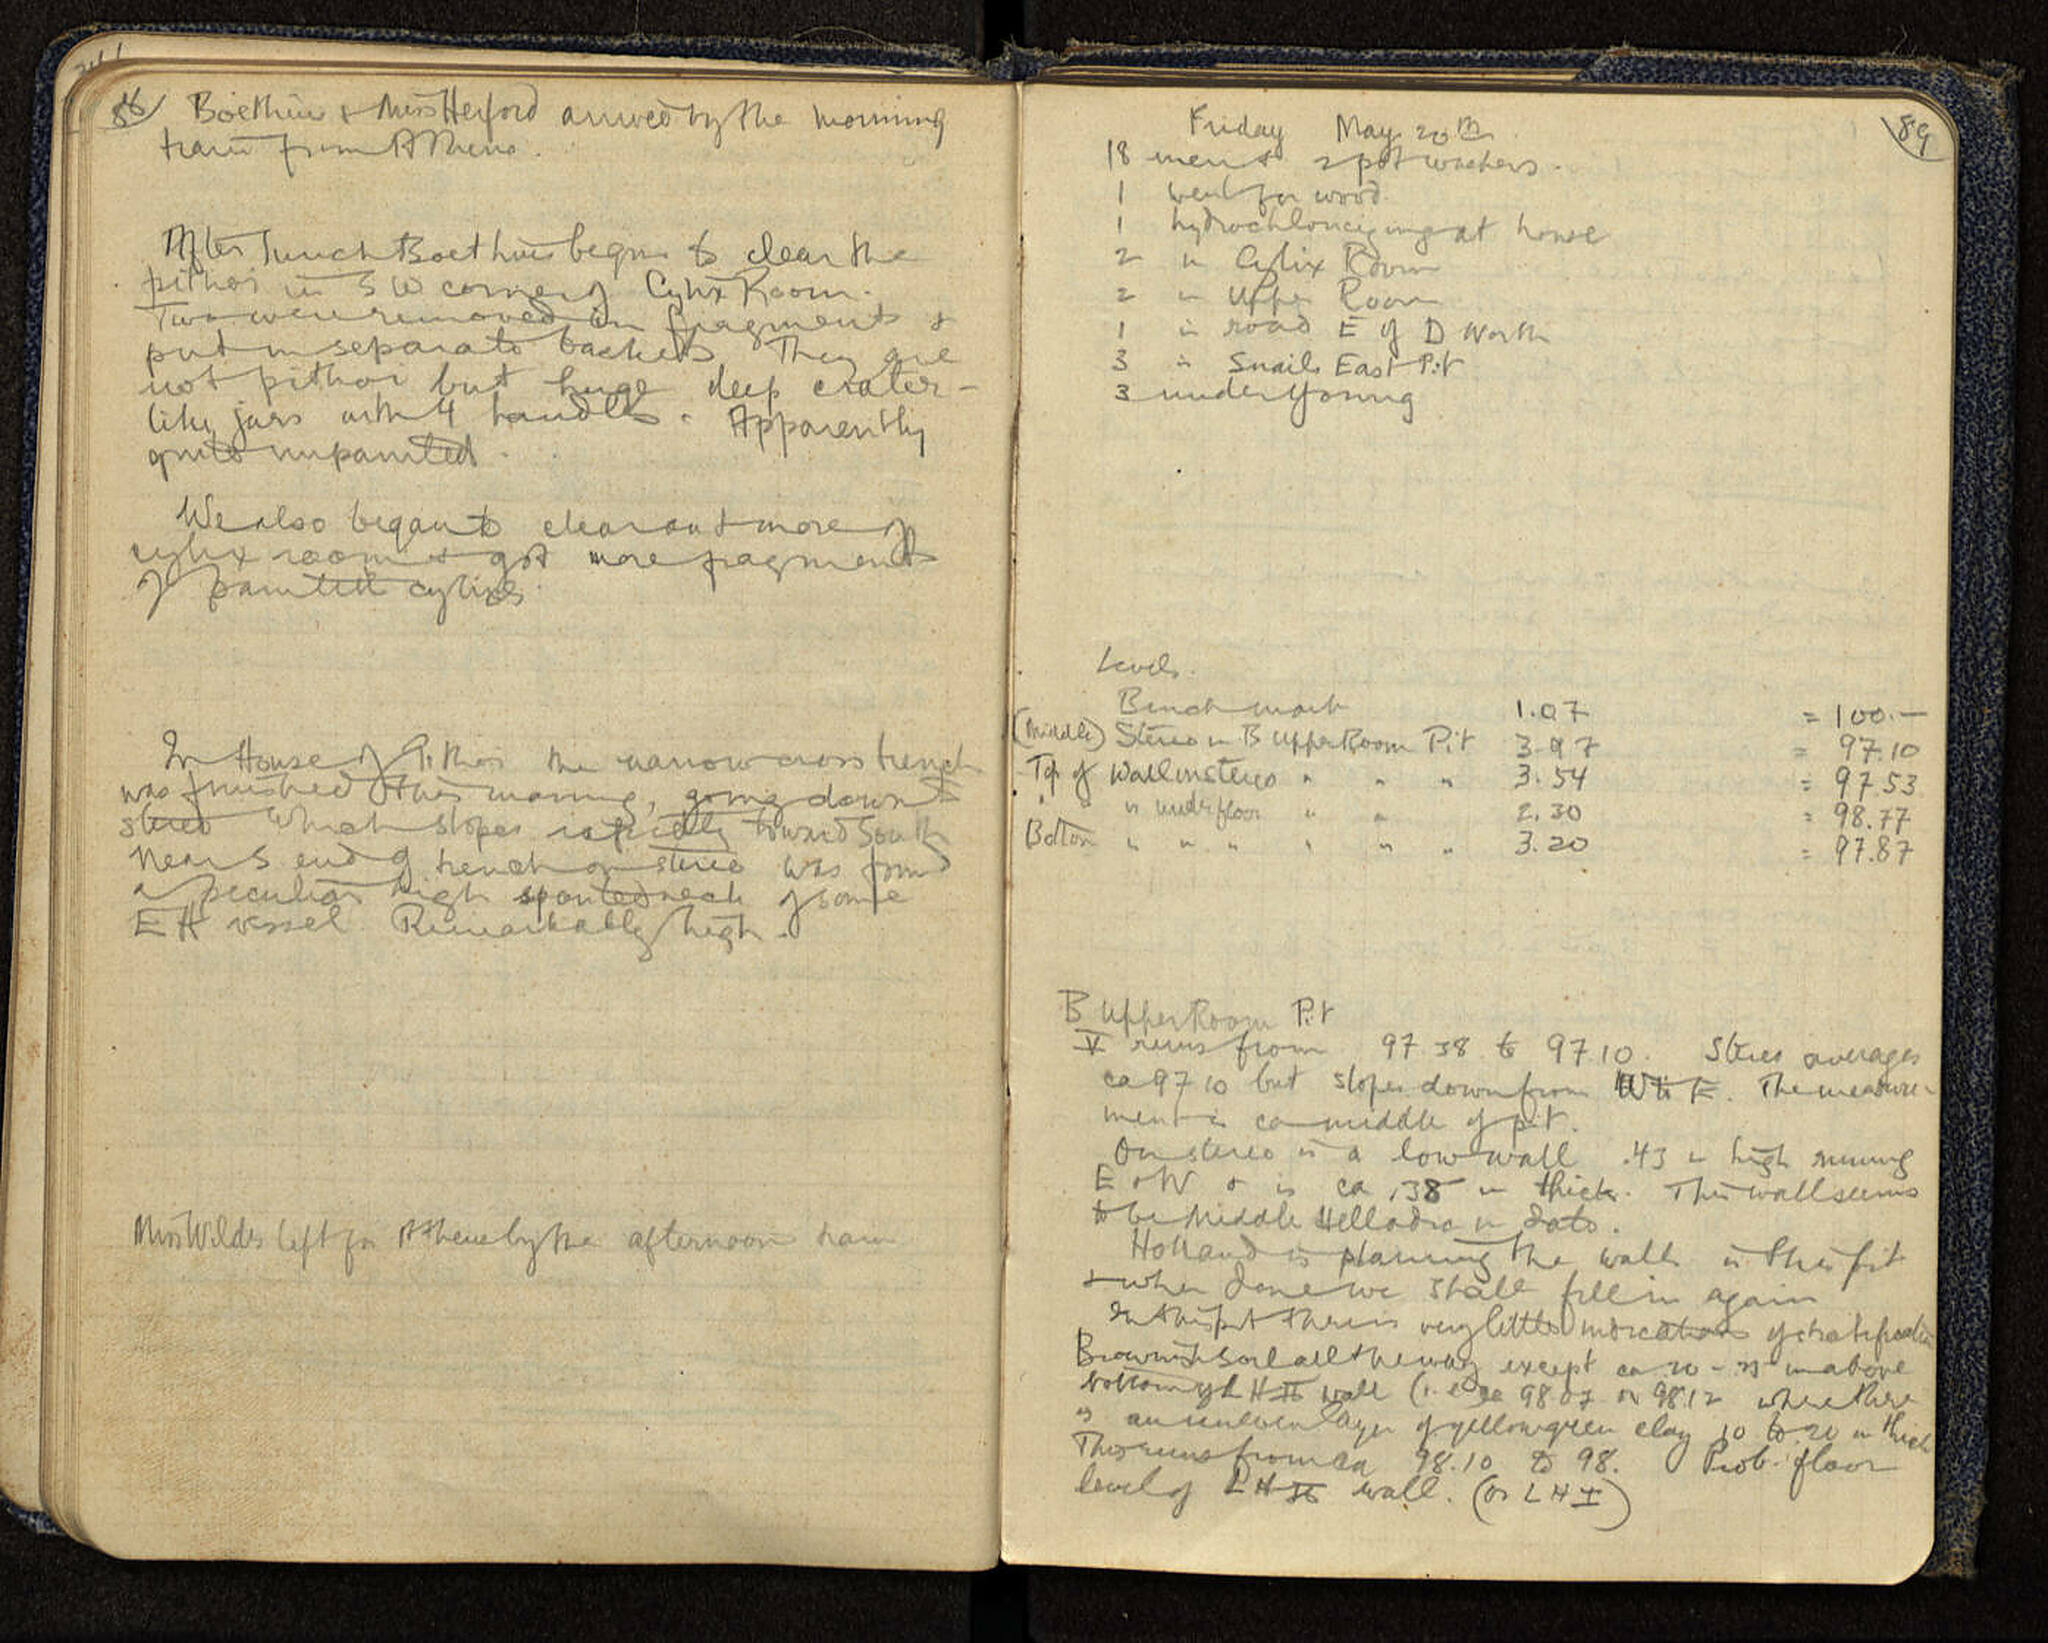 88
Boethius & Miss Herford arrived by the morning
train from Athens.
After lunch Boethius began to clear the
pithoi in SW corner of Cylix Room.
Two were removed in fragments &
put in separate baskets. They are
not pithoi but huge deep crater-
like jars with 4 handles. Apparently
quite unpainted.
We also began to clear out more of
cylix room & got more fragments
of painted cylixes.
In House of Pithoi the narrow cross trench
was finished this morning, going down to
stereo which slopes rapidly toward South
Near S end of trench on stereo was found
a peculiar high spouted neck of some
EH vessel. Remarkably high.
Miss Wilde left for Athens by the afternoon train
89
Friday May 20th
18 men & 2 pot washers.
1 went for wood
1 hydrochloricizing at house
2 in Cylix Room
2 in Upper Room
1 in road E of D North
3 in Snails East Pit
3 under Young
Levels.
Bench mark 1.07 = 100.—
(Middle) Stereo in B Upper Room Pit 3.97 = 97.10
Top of Wall on stereo " " " 3.54 = 97.53
" " in under floor " " 2.30 = 98.77
Bottom " " " " " " 3.20 = 97.87
B Upper Room Pit
V runs from 97.38 to 97.10. Stereo averages
ca 97.10 but slopes down from W to E. The measure-
ment is ca middle of pit.
On stereo is a low wall .43 m high running
E & W & is ca .38 m thick. This wall seems
to be Middle Helladic in date.
Holland is planning the walls in this pit
& when done we shall fill in again
In this pit there is very little indication of stratification
Brownish soil all the way except ca 20 - 25 m above
bottom of LH II wall (i.e. ca 98.07 or 98.12 where there
is an uneven layer of yellow green clay .10 to .20 m thick
This runs from ca 98.10 to 98. Prob. floor
level of LH II wall. (or LH I)